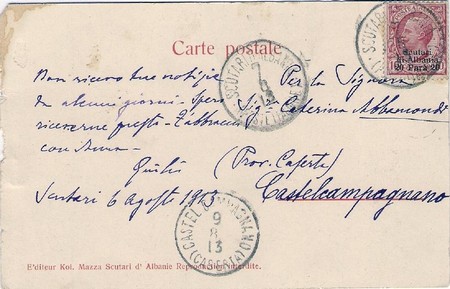 Carte postale
Scutari
di Albania
20 Parà 20
SCUTARI
7
8
13
Non ricevo tue notizie
da alcuni giorni. Spero
riceverne presto. T'abbraccio
con
Giulio
Scutari 6 Agosto 1913
Per la Signora
Sig.ra Caterina Abbamondi
(Prov. Caserta)
Castelcampagnano
CASTEL CAMPAGNANO
9
8
13
(CASERTA)
E'diteur Kol. Mazza Scutari d' Albanie Reproduction interdite.